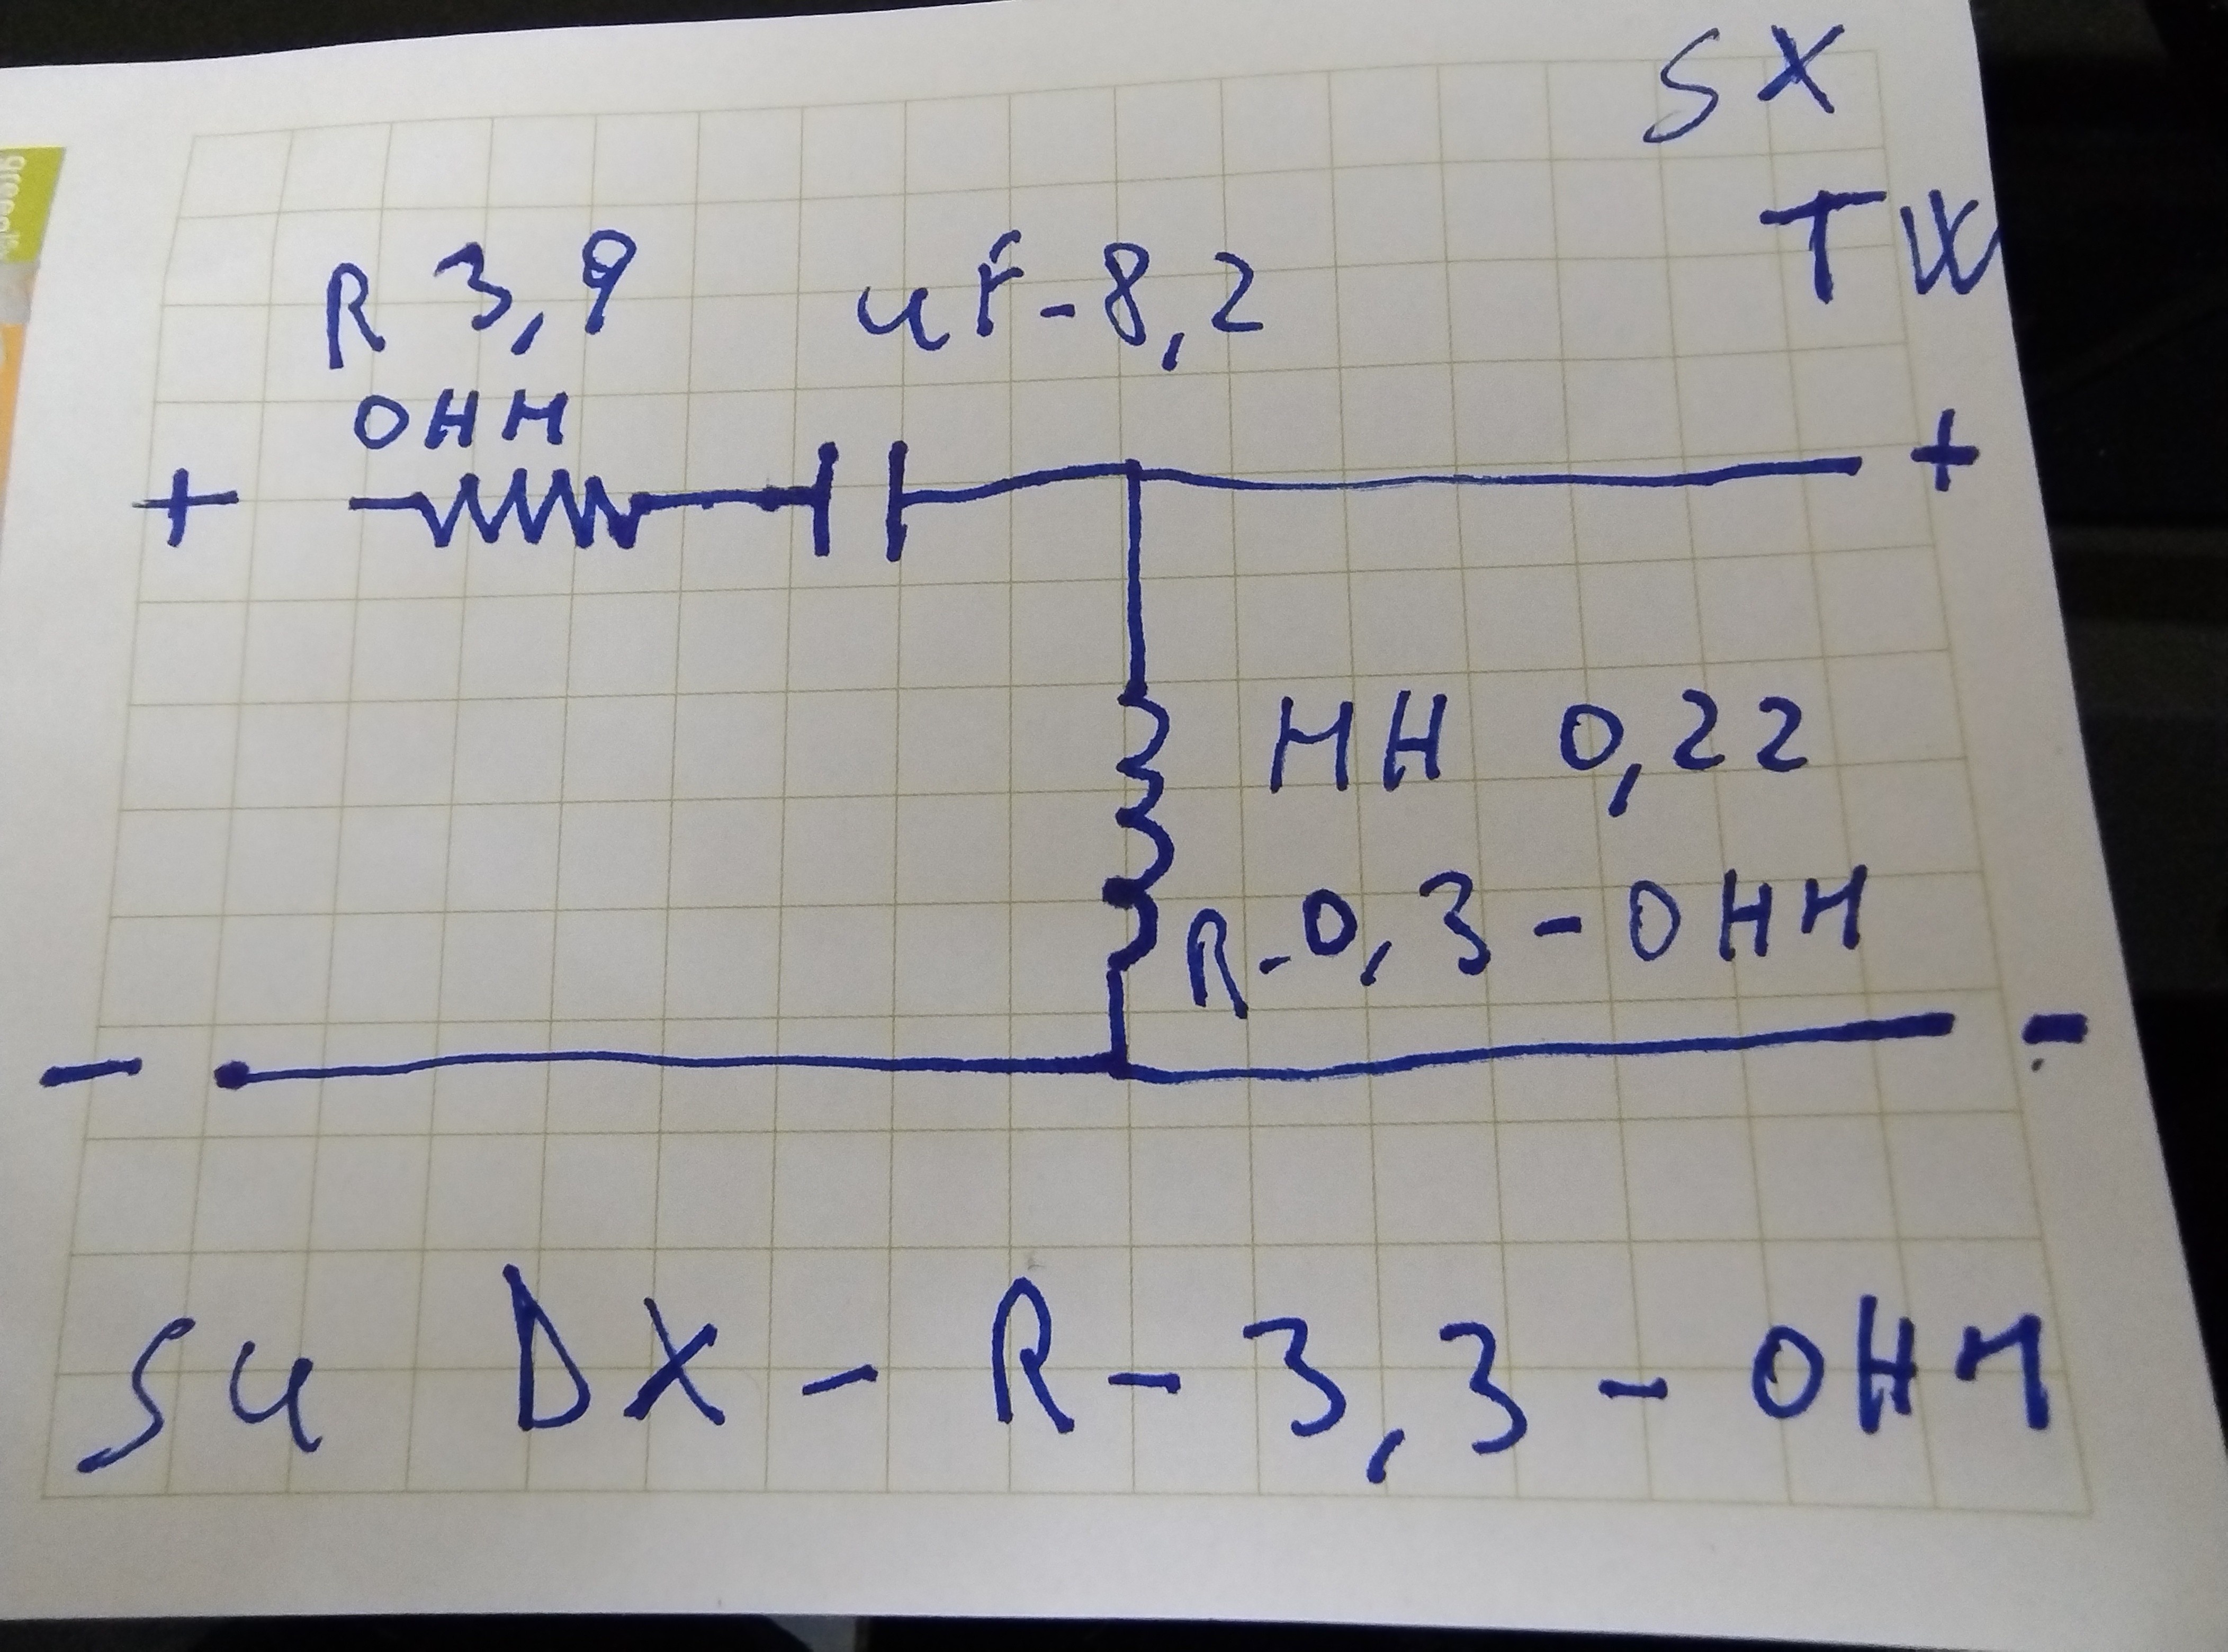 SX
TW
R 3,9 uF-8,2
OHM
+ +
MH 0,22
R-0,3-OHM
- -
SU DX-R-3,3-OHM